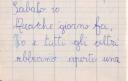 Sabato 10
Qualche giorno fa,
Io e tutti gli altri
abbiamo aperto una